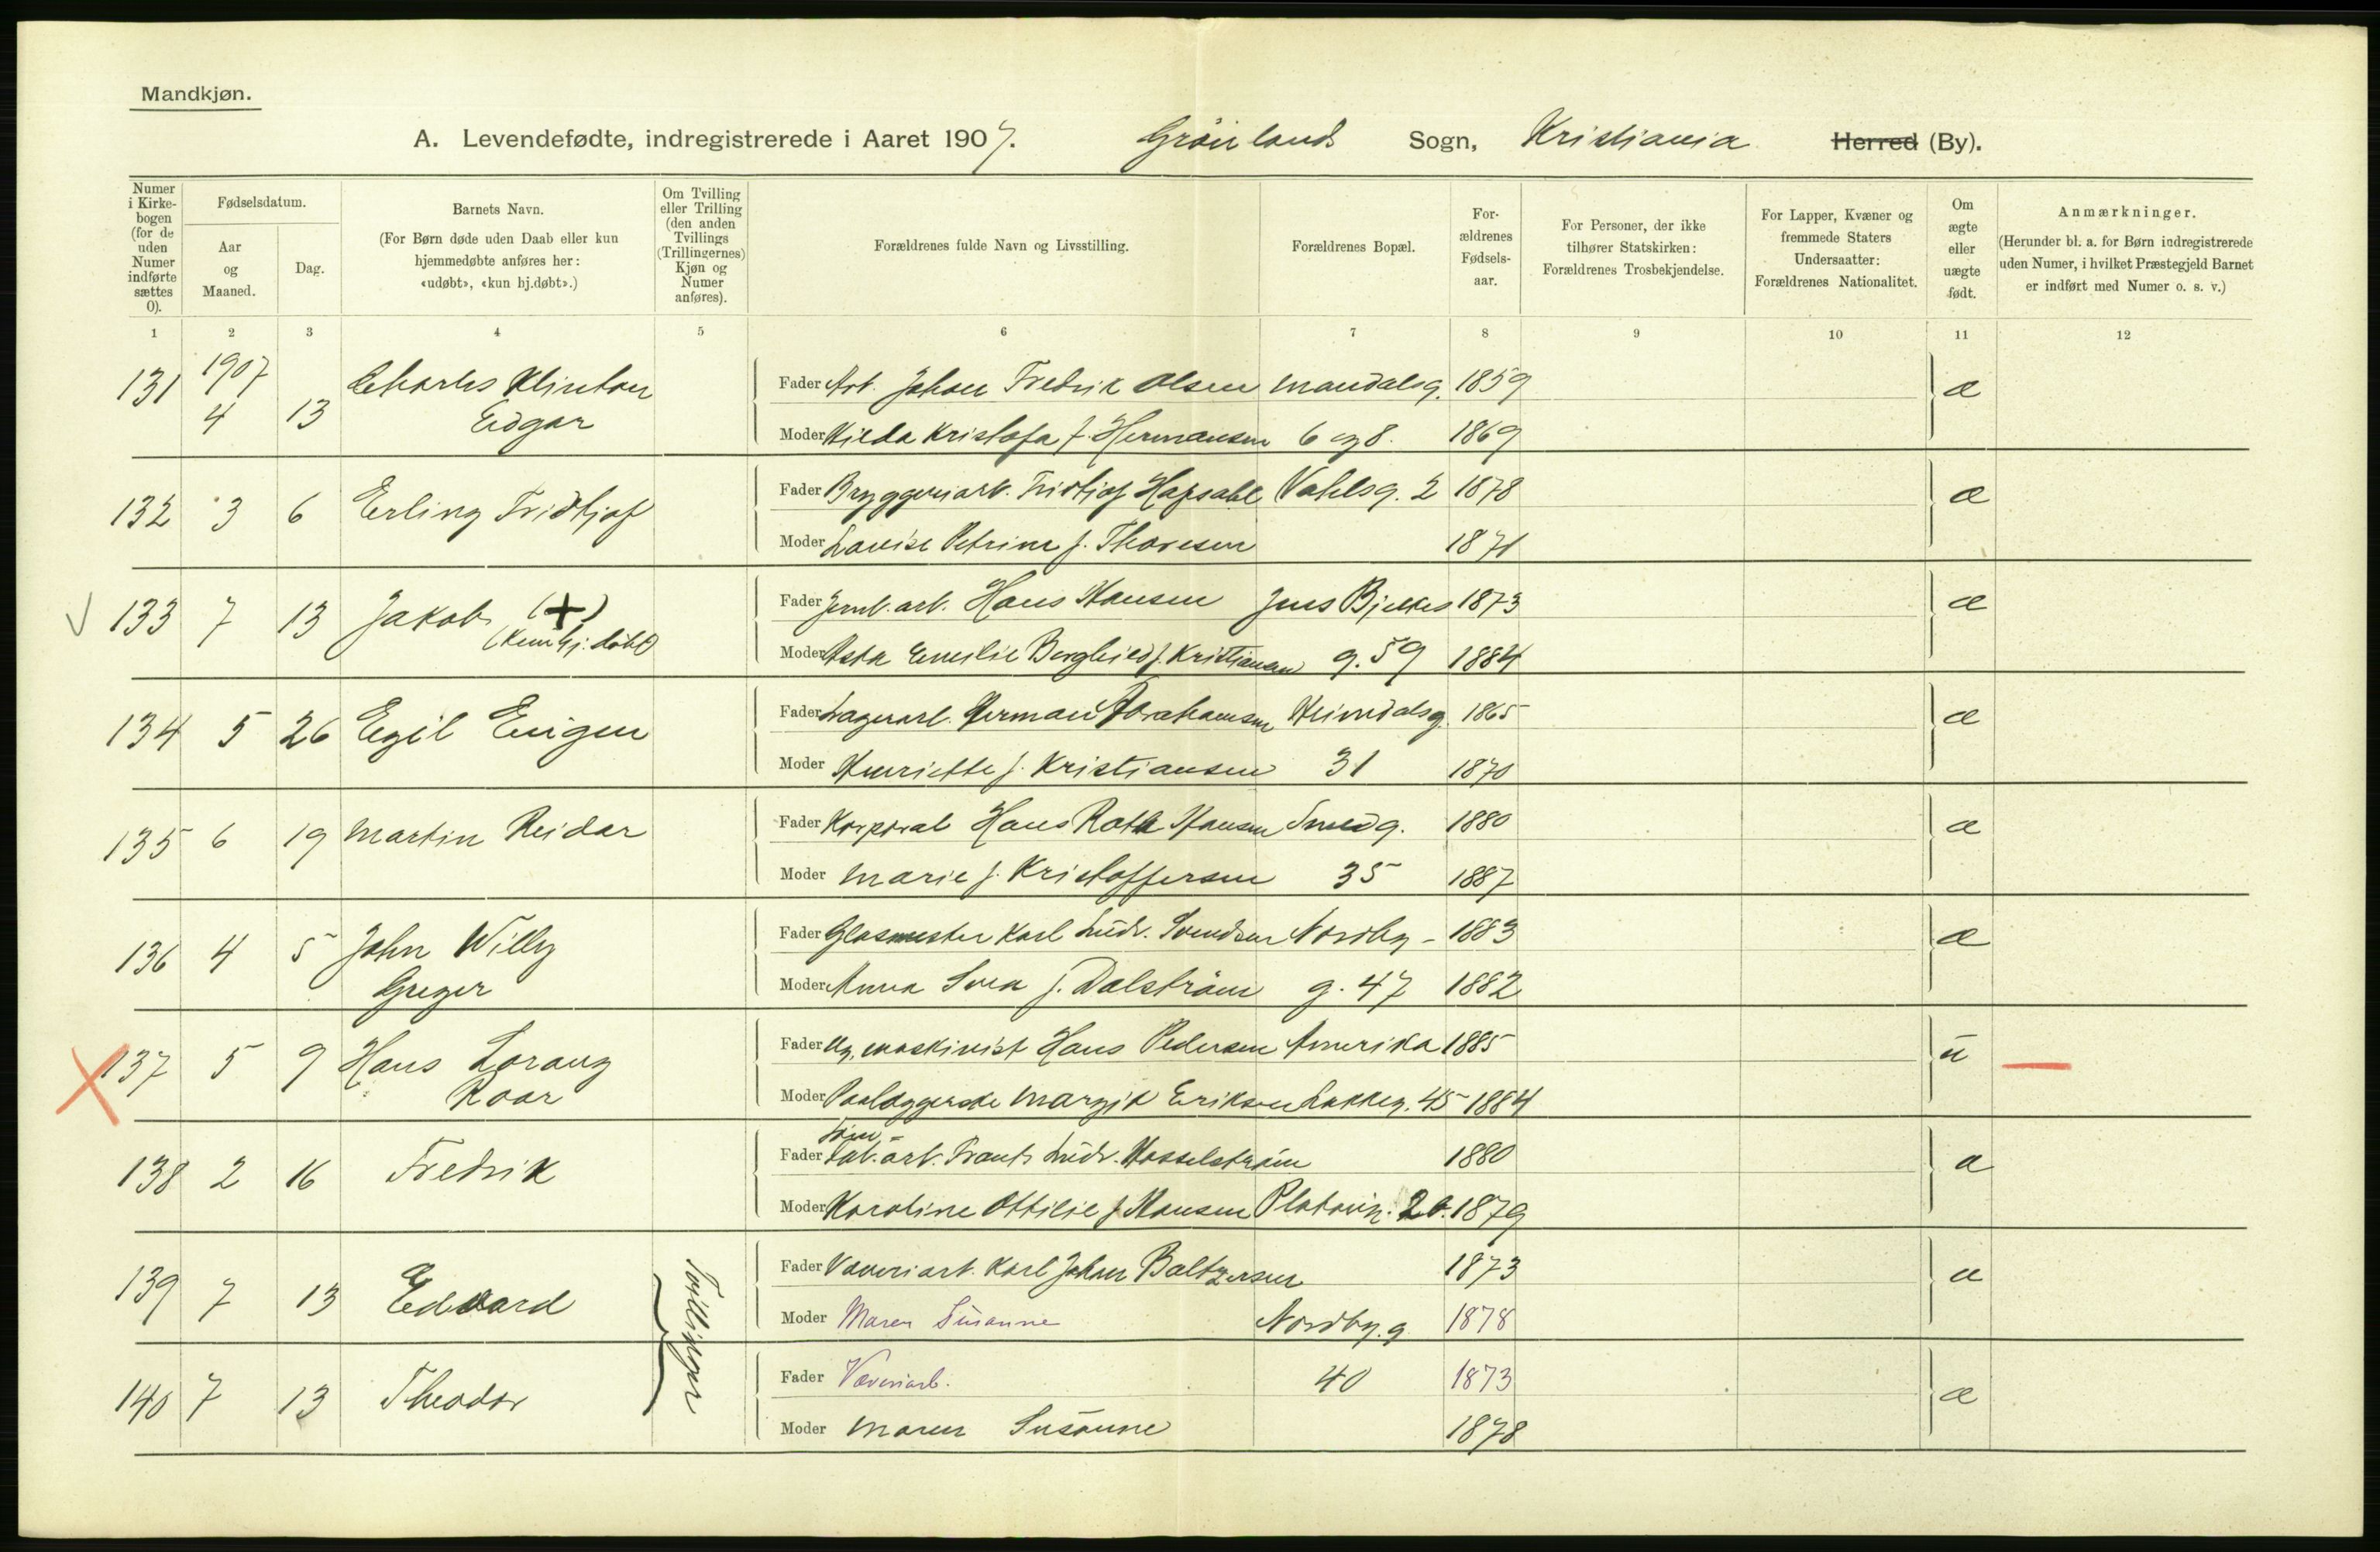 Mandkjøn.
A. Levendefødte, indregistrerede i Aaret 1907. Grönlands Sogn, Kristiania Herred (By).
Numer i Kirkebogen (for de uden Numer indførte sættes 0).
Fødselsdatum.
Aar og Maaned.
Dag.
Barnets Navn.
(For Børn døde uden Daab eller kun hjemmedøbte anføres her: «udøbt», «kun hj.døbt».)
Om Tvilling eller Trilling (den anden Tvillings (Trillingernes) Kjøn og Numer anføres).
Forældrenes fulde Navn og Livsstilling.
Forældrenes Bopæl.
Forældrenes Fødselsaar.
For Personer, der ikke tilhører Statskirken: Forældrenes Trosbekjendelse.
For Lapper, Kvæner og fremmede Staters Undersaatter: Forældrenes Nationalitet.
Om ægte eller uægte født.
Anmærkninger.
(Herunder bl. a. for Børn indregistrerede uden Numer, i hvilket Præstegjeld Barnet er indført med Numer o. s. v.)
1 2 3 4 5 6 7 8 9 10 11 12
131 1907 4 13 Charles Klinton Edgar
Fader Arb. Johan Fredrik Olsen Mandalsg. 1859 æ
Moder Hilda Kristofa f. Hermansen 6 og 8. 1869
132 3 6 Erling Fridtjof
Fader Bryggeriarb. Fridtjof Hapsahl Vahlsg. 2 1878 æ
Moder Lovise Petrine f. Thoresen 1871
133 7 13 Jakob (+) (Kun hj. døbt)
Fader Jernb. arb. Hans Hansen Jens Bjelkes 1873 æ
Moder Asta Emilie Borghild f. Kristiansen g. 59 1884
134 5 26 Egil Eugen
Fader Lagerarb. Herman Abrahamsen Heimdalsg. 1865 æ
Moder Henriette f. Kristiansen 31 1870
135 6 19 Martin Reidar
Fader Korporal Hans Roth Hansen Smedg. 1880 æ
Moder Marie f. Kristoffersen 35 1887
136 4 5 John Willy Greger
Fader Glasmester Karl Ludv. Svendsen Nordby- 1883 æ
Moder Anna Svea f. Dalström g. 47 1882
137 5 9 Hans Lorang Roar
Fader Ug. maskinist Hans Pedersen Amerika 1885 u
Moder Paalæggerske Margit Eriksen Lakkeg. 45 1884
138 2 16 Fredrik
Fader arb. Frants Ludv. Hasselström 1880 æ
Moder Karoline Ottilie f. Hansen Platoug. 2 b. 1879
139 7 13 Edvard Tvillinger
Fader Væveriarb. Karl Johan Baltzersen 1873 æ
Moder Maren Susanne Nordby.g 1878
140 7 13 Theodor
Fader Væveriarb. 40 1873 æ
Moder Maren Susanne 1878